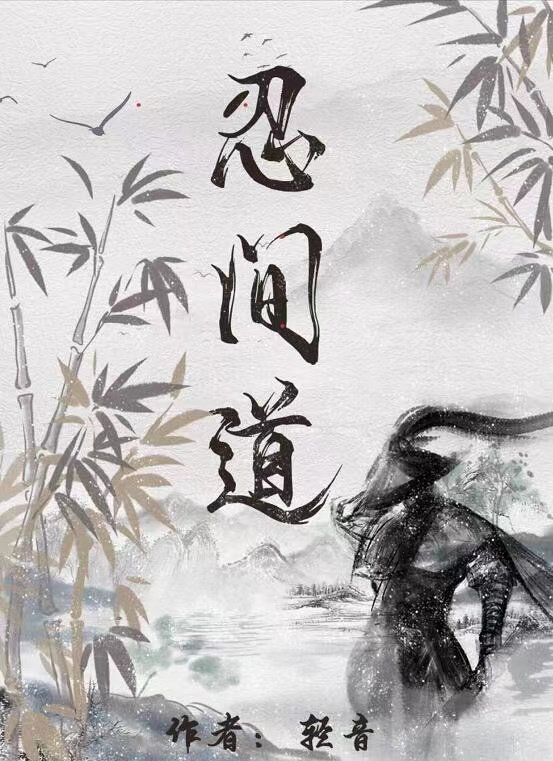 忍间道
作者：轻音